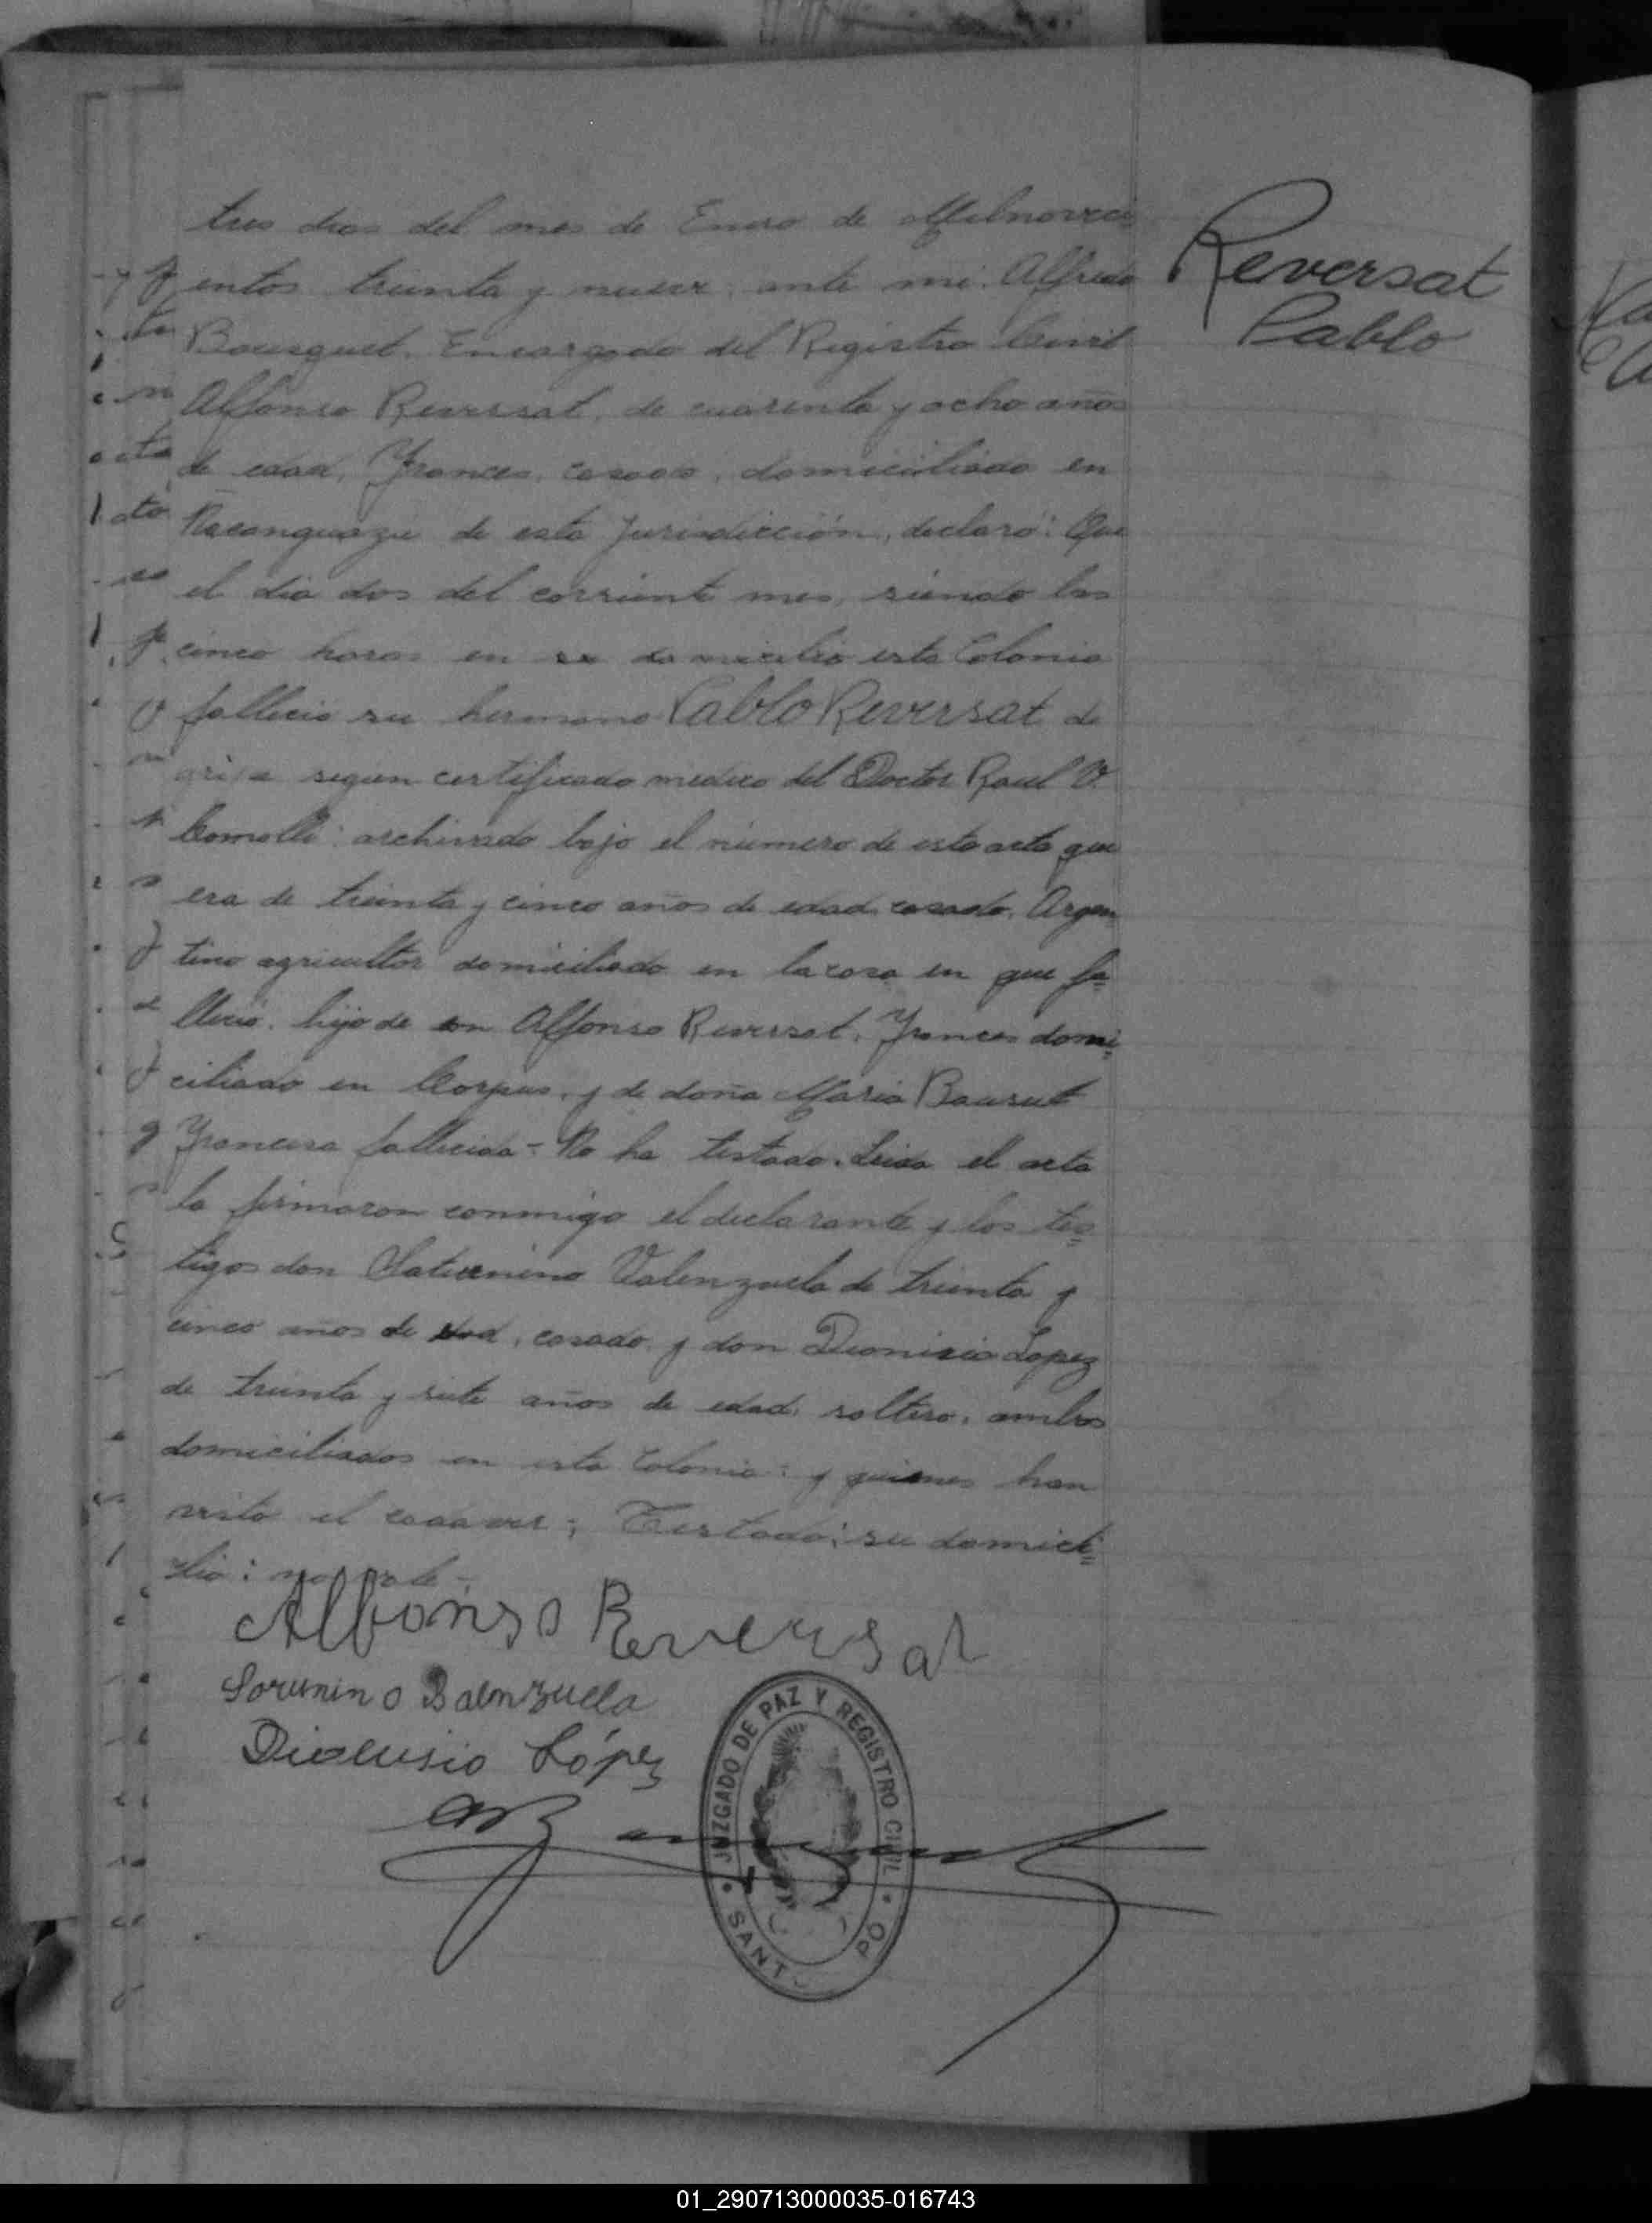 tres dias del mes de Enero de Milnoveci
entos treinta y nueve, ante mi. Alfredo
Bousquet. Encargado del Registro Civil
Alfonso Reversat, de cuarenta y ocho años
de edad, Frances, casado, domiciliado en
Ñacanguazu de esta Jurisdicción, declaró: Que
el dia dos del corriente mes, siendo las
cinco horas en su domicilio esta Colonia
fallecio su hermano Pablo Reversat de
gripe segun certificado medico del Doctor Raul V.
Comolli: archivado bajo el número de esta acta que
era de treinta y cinco años de edad casado. Argen
tino agricultor domiciliado en la casa en que fa=
lleció. hijo de don Alfonso Reversat. Frances domi=
ciliado en Corpus. y de doña Maria
Francesa fallecida - No ha testado. Leida el acta
la firmaron conmigo el declarante y los tes=
tigos don Saturnino Valenzuela de treinta y
cinco años de edad, casado y don Dionisio Lopez
de treinta y siete años de edad, soltero, ambos
domiciliados en esta Colonia: y quienes han
visto el cadaver; Testado: su domici=
lio: no vale -
Reversat
Pablo
Alfonso Reversat
Sorunino Balenzuela
Dionisio López
JUZGADO DE PAZ Y REGISTRO CIVIL
SANT PO
01_290713000035-016743